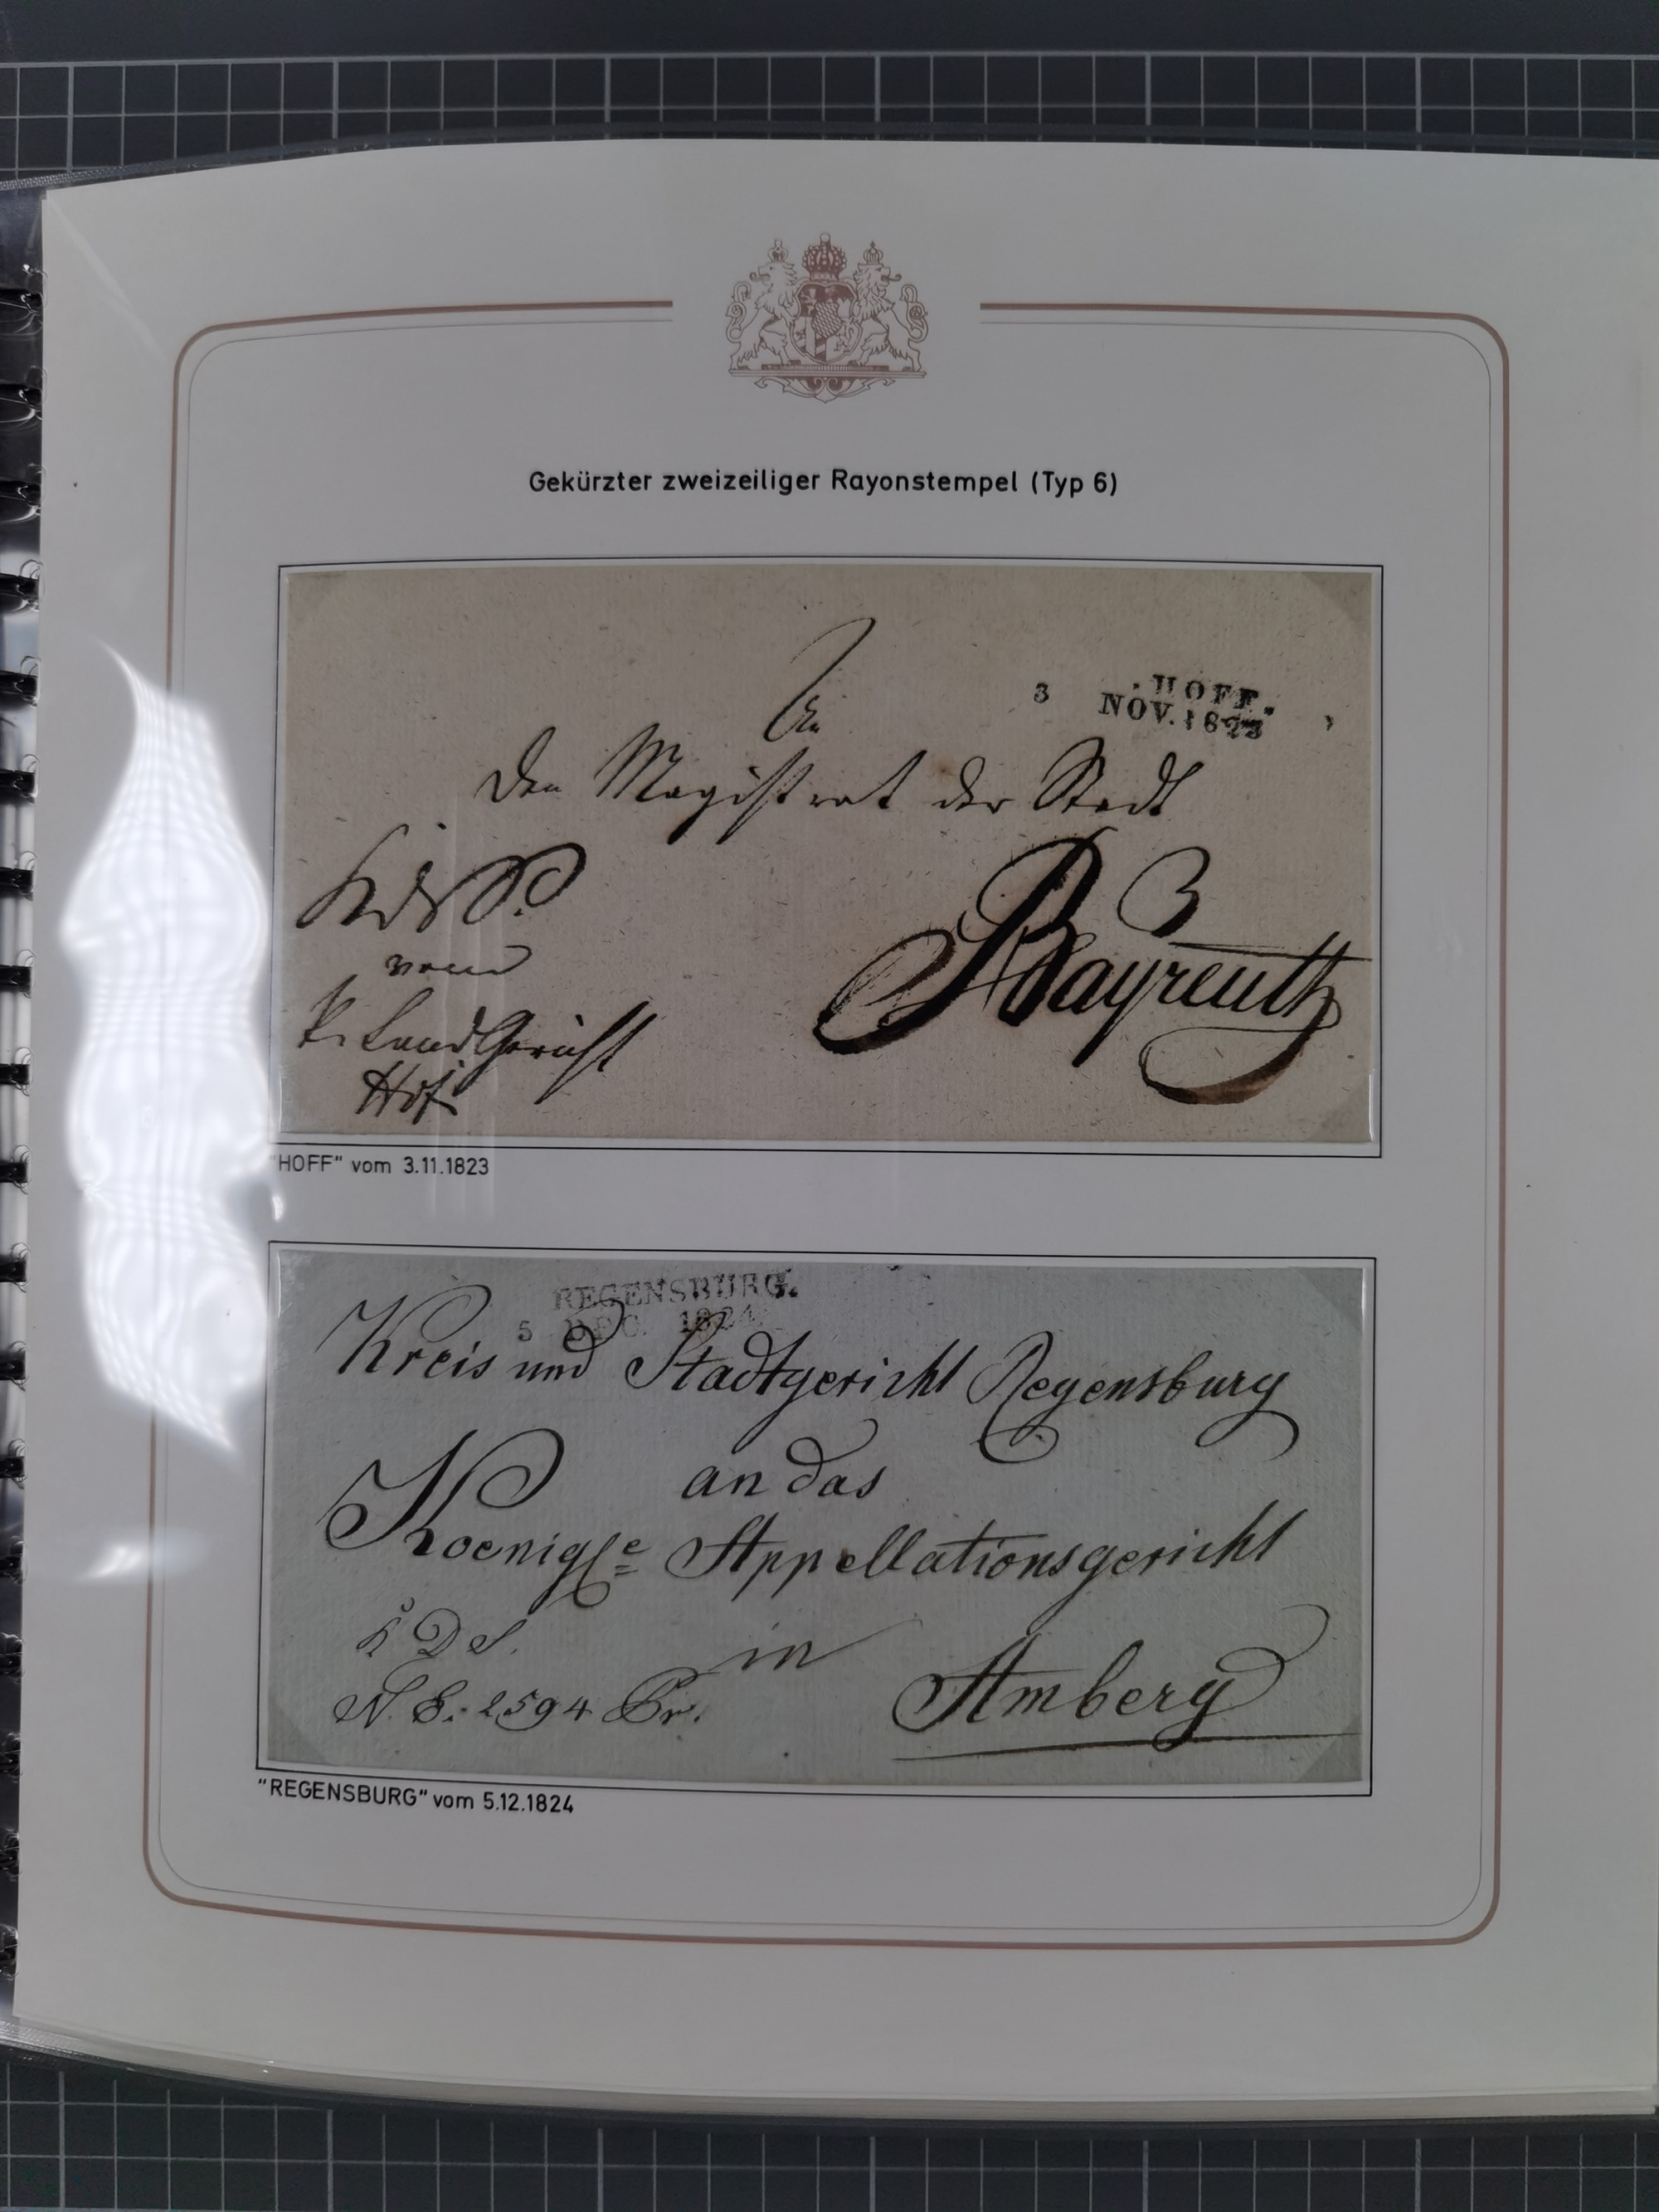 Gekürzter zweizeiliger Rayonstempel (Typ 6)
.HOFF.
3 NOV. 1823
An
den Magistrat der Stadt
Bayreuth
vom
k. LandGericht
Hof
"HOFF" vom 3.11.1823
REGENSBURG.
5 DEC. 1824
Kreis und Stadtgericht Regensburg
an das
Koenigle Appellationsgericht
in
Amberg
N. E: 2594 Pr.
"REGENSBURG" vom 5.12.1824